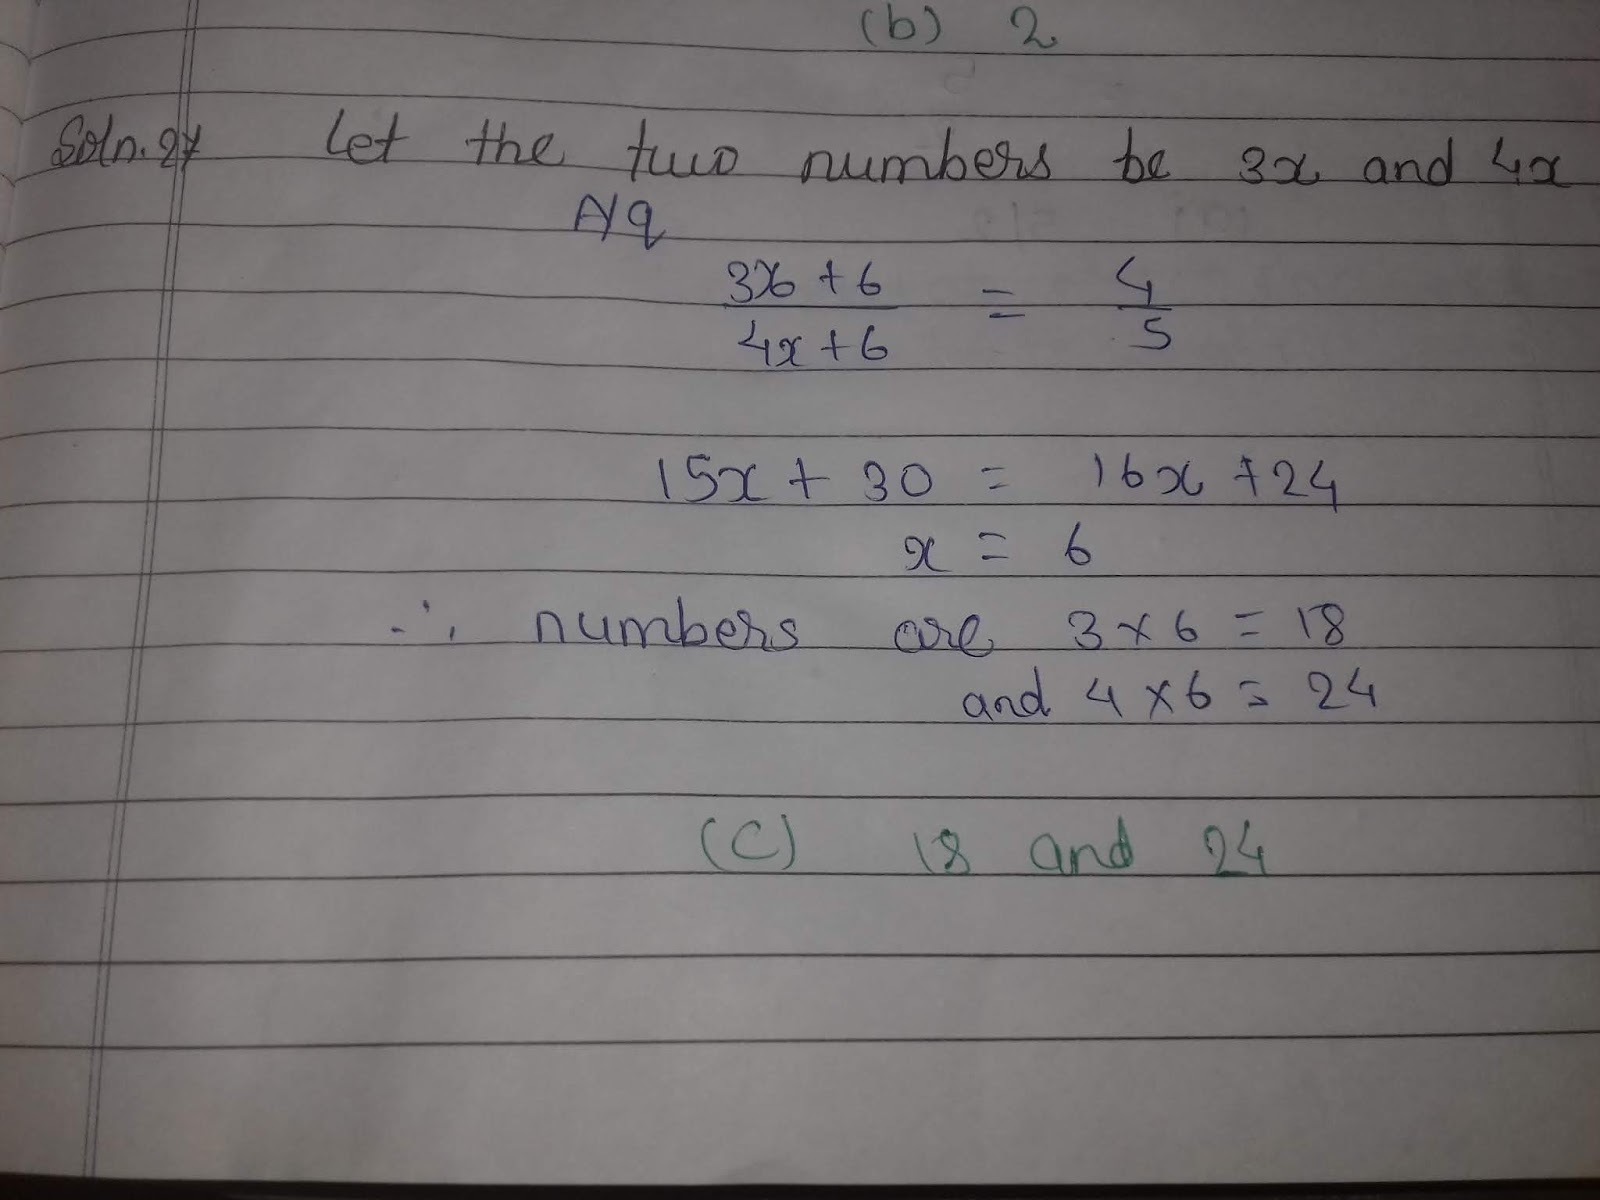 (b) 2
Soln. 27 Let the two numbers be 3x and 4x
A/q
3x + 6 = 4
4x + 6 5
15x + 30 = 16x + 24
x = 6
∴ numbers are 3 × 6 = 18
and 4 × 6 = 24
(C) 18 and 24